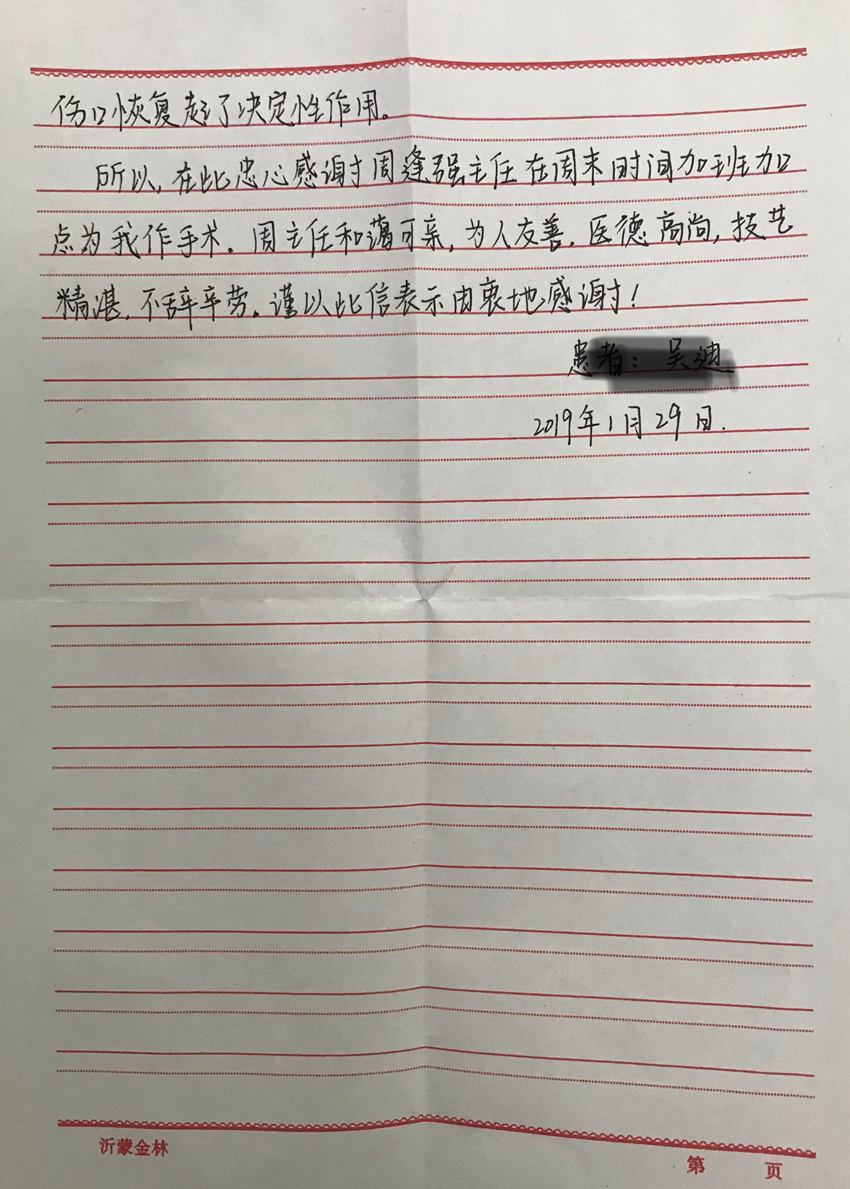 伤口恢复起了决定性作用。
所以,在此忠心感谢周逢强主任在周末时间加班加
点为我作手术。周主任和蔼可亲,为人友善,医德高尚,技艺
精湛,不辞辛劳。谨以此信表示由衷地感谢!
患者:
2019年1月29日.
沂蒙金林
第 页